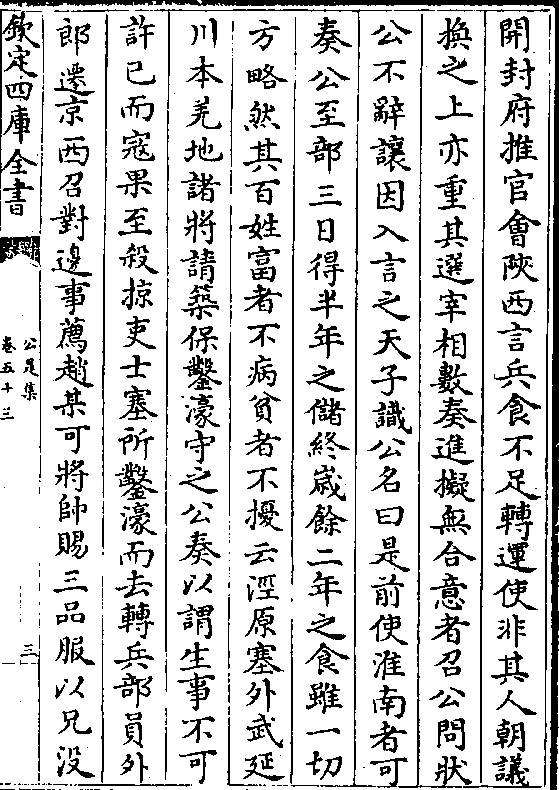 開封府推官會陜西言兵食不足轉運使非其人朝議
換之上亦重其選宰相數奏進擬無合意者召公問狀
公不辭讓因入言之天子識公名曰是前使淮南者可
奏公至部三日得半年之儲終嵗餘二年之食雖一切
方略然其百姓富者不病貧者不擾云涇原塞外武延
川本羌地諸將請築保鑿濠守之公奏以謂生事不可
許已而寇果至殺掠吏士塞所鑿濠而去轉兵部員外
郎遷京西召對邊事薦趙某可將帥賜三品服以兄没
欽定四庫全書
公是集
卷五十三
三